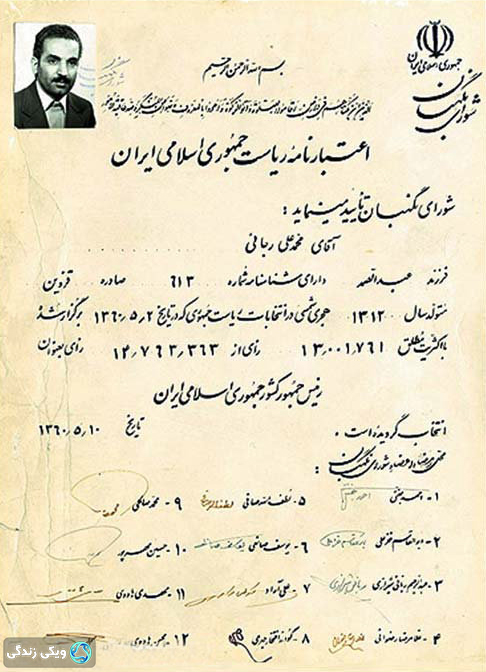 جمهوری اسلامی ایران
شورای نگهبان
بسم الله الرحمن الرحیم
اعتبارنامهٔ ریاست جمهوری اسلامی ایران
شورای نگهبان تأیید مینماید:
آقای محمدعلی رجائی
فرزند عبدالصمد دارای شناسنامه شماره ۶۱۳ صادره قزوین
متولد سال ۱۳۱۲ هجری شمسی در انتخابات ریاست جمهوری که در تاریخ ۱۳۶۰٫۵٫۲ برگزار شد
با اکثریت مطلق ۱۳٫۰۰۱٫۷۶۱ رأی از ۱۴٫۷۶۳٫۳۶۳ رأی بعنوان
رئیس جمهور کشور جمهوری اسلامی ایران
انتخاب گردیده است. تاریخ ۱۳۶۰٫۵٫۱۰
شورای نگهبان:
۱- احمد جنتی ۵- لطف الله صافی ۹- محمد صالحی
۲- ابوالقاسم خزعلی ۶- یوسف صانعی ۱۰- حسین مهرپور
۳- عبدالرحیم ربانی شیرازی ۷- علی آراد ۱۱- مهدی هادوی
۴- غلامرضا رضوانی ۸- گودرز افتخار جهرمی ۱۲- محسن هادوی
ویکی زندگی